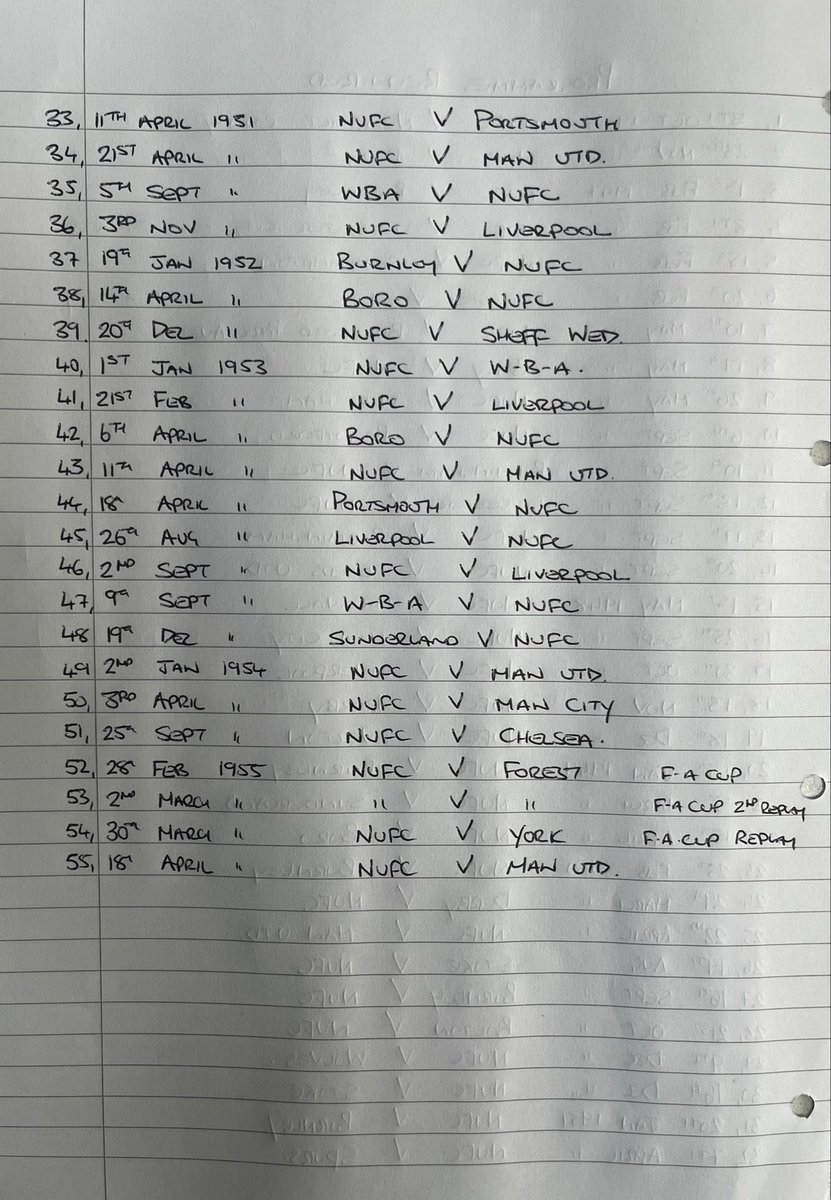 33, 11TH APRIL 1951 NUFC V PORTSMOUTH
34, 21ST APRIL " NUFC V MAN UTD.
35, 5TH SEPT " WBA V NUFC
36, 3RD NOV " NUFC V LIVERPOOL
37 19TH JAN 1952 BURNLEY V NUFC
38, 14TH APRIL " BORO V NUFC
39. 20TH DEC " NUFC V SHEFF WED.
40, 1ST JAN 1953 NUFC V W-B-A.
41, 21ST FEB " NUFC V LIVERPOOL
42, 6TH APRIL " BORO V NUFC
43, 11TH APRIL " NUFC V MAN UTD.
44, 18TH APRIL " PORTSMOUTH V NUFC
45, 26TH AUG " LIVERPOOL V NUFC
46, 2ND SEPT " NUFC V LIVERPOOL
47, 9TH SEPT " W-B-A V NUFC
48 19TH DEC " SUNDERLAND V NUFC
49 2ND JAN 1954 NUFC V MAN UTD.
50, 3RD APRIL " NUFC V MAN CITY
51, 25TH SEPT " NUFC V CHELSEA.
52, 28TH FEB 1955 NUFC V FOREST F-A CUP
53, 2ND MARCH " " V " F-A CUP 2ND REPLAY
54, 30TH MARCH " NUFC V YORK F.A.CUP REPLAY
55, 18TH APRIL " NUFC V MAN UTD.